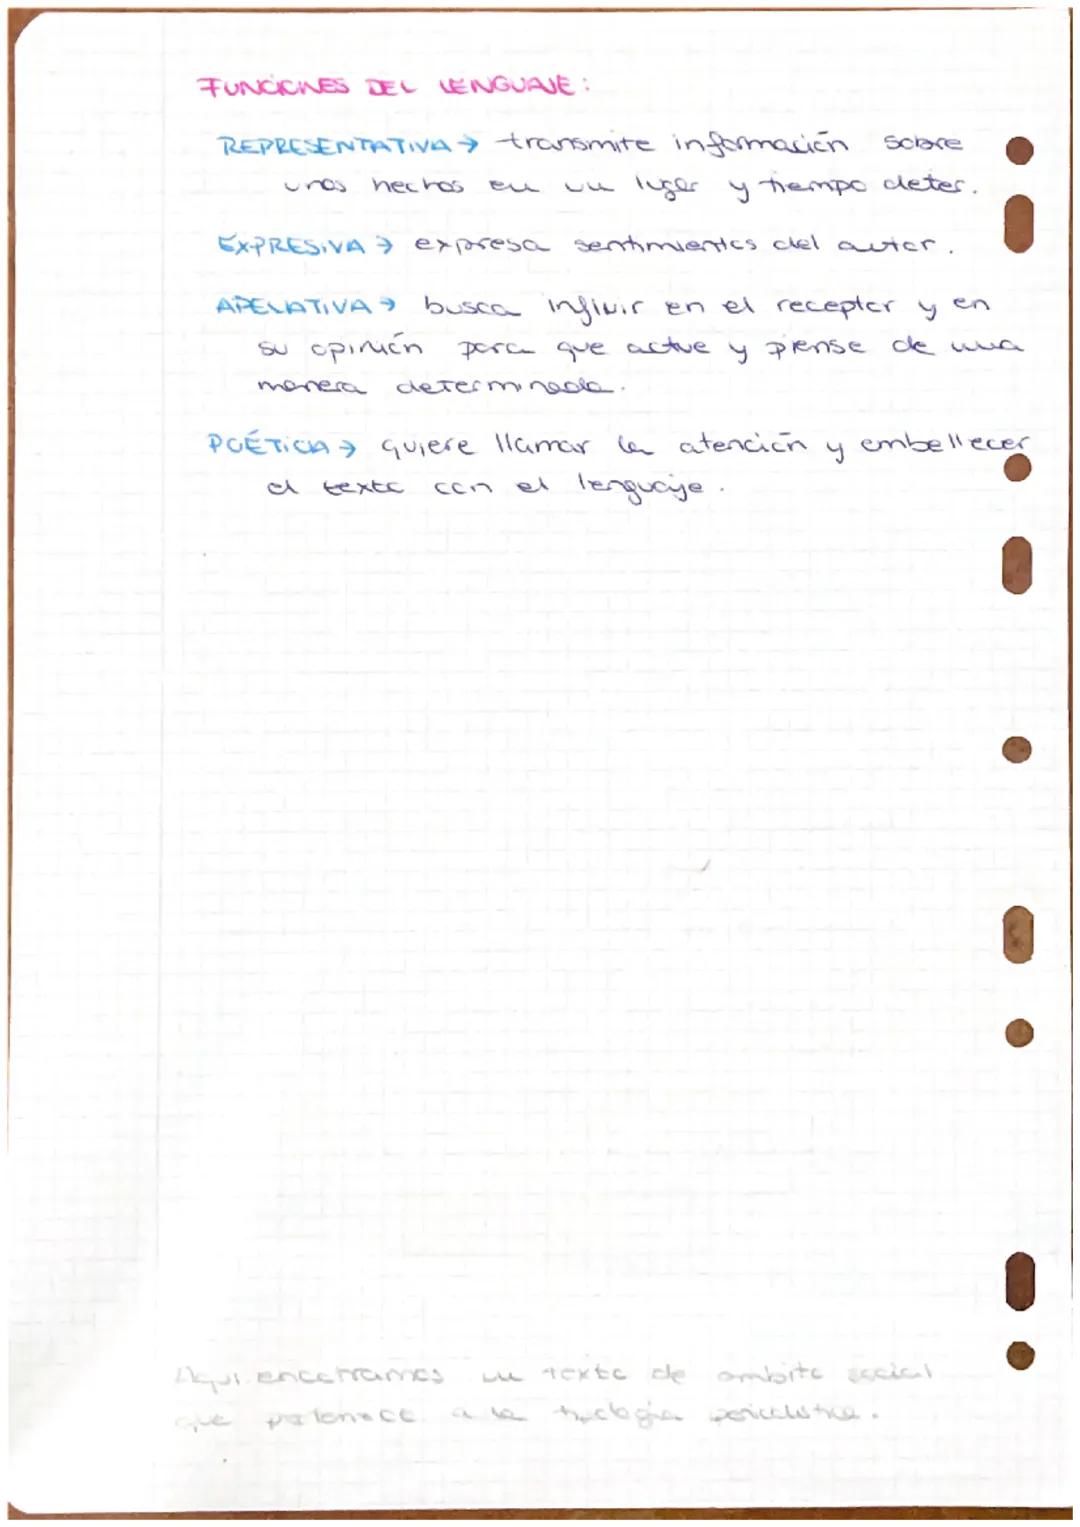 FUNCIONES DEL LENGUAJE:
REPRESENTATIVA → transmite información sobre
unos hechos en un lugar y tiempo deter.
EXPRESIVA → expresa sentimientos del autor.
APELATIVA → busca influir en el receptor y en
su opinión para que actue y piense de una
manera determinada.
POÉTICA → quiere llamar la atención y embellecer
el texto con el lenguaje.
Aqui encotramos un texto de ambito social
que pertenece a la tipologia periodistica.